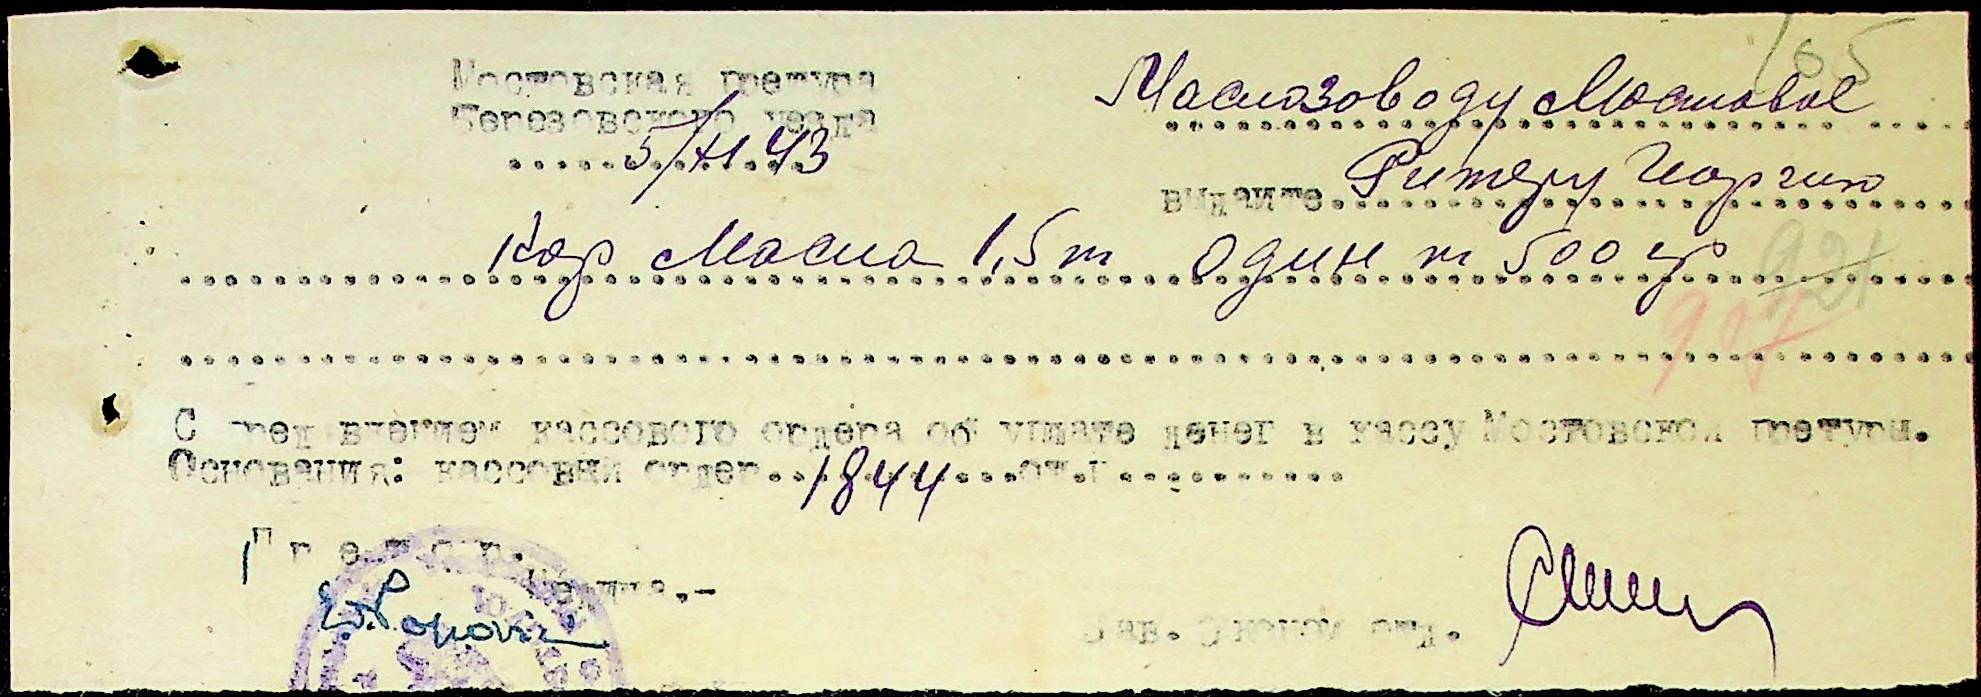 165
Мостовская претура
Березовского уезда
5/XI 43
Маслозоводу Мостовое
выдайте Ритеру Георгию
Кор Масла 1,5 т один т 500 гр
921
907
С пред'явлением кассового ордера об уплате денег в кассу Мостовской претуры.
Основания: кассовый ордер 1844 от
Претор.
Popovici
Зав. Эконом отд.